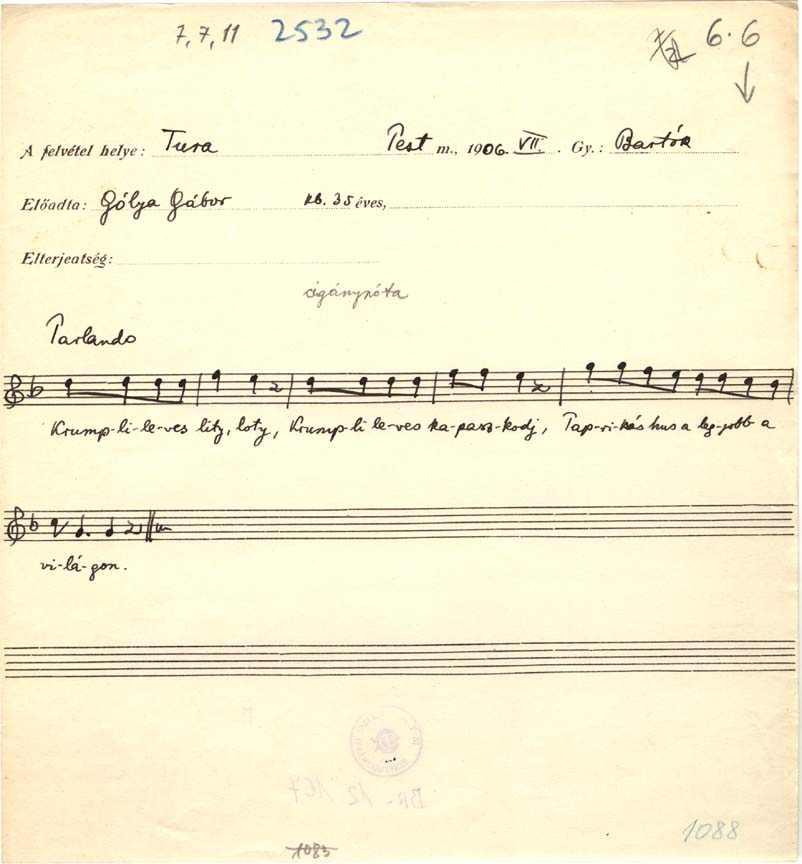 7, 7, 11 2532 6.6
A felvétel helye: Tura Pest m., 1906. VII. Gy.: Bartók
Előadta: Gólya Gábor kb. 35 éves,
Elterjedtség:
cigánynóta
Parlando
Krump-li-le-ves lity, loty, Krump-li le-ves ka-pasz-kodj, Pap-ri-kás hus a leg-jobb a
vi-lá-gon.
BR-12 167
1083
1088